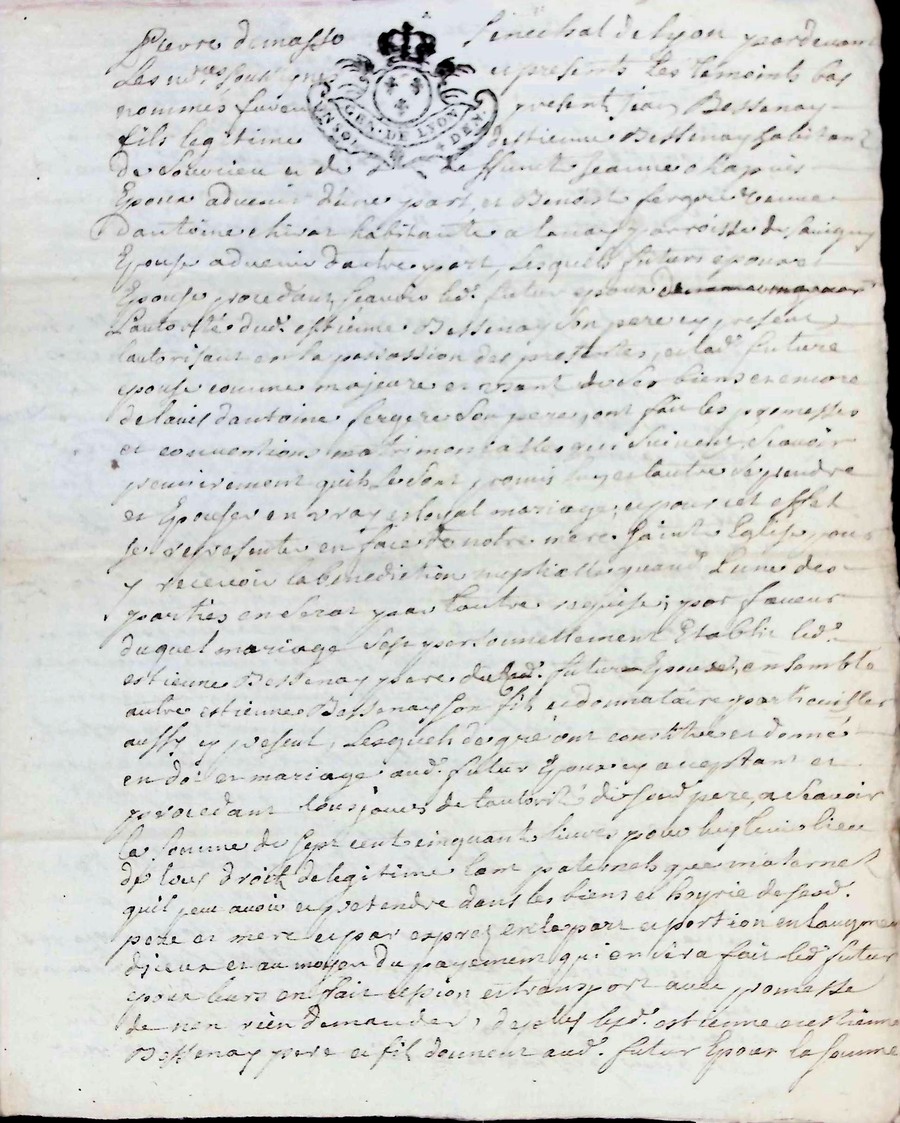 Pierre demasso Senechal de Lyon pardevant
Les nres soussignes et presents les temoints bas
nommés furent present jean Bessenay
fils legitime destienne Bessenay habitant
de Souvrieu et de deffunte Jeanne chapuis
Epoux advenir d'une part, et Benoiste fergere veuve
dantoine habitante a parroisse de Savigny
Epouse advenir dautre part, Lesquels futurs epoux et
Epouse procedant scavoir led. futur epoux de
L'autorité dud. estienne Bessenay son pere cy present,
lautorisant en la passassion des presentes, et lad. future
epouse comme majeure et usant de ses biens et encore
de lavis dantoine fergere son pere, ont fait les promesses
et conventions matrimonialles qui suivent, Scavoir
premierement quils se sont promis lun et lautre de prendre
et Epouser en vray et loyal mariage, et pour cet effet
se representer en face de notre mere Sainte Eglise pour
y recevoir la benediction nuptialle quand L'une des
parties en Serat par lautre requise; par faveur
duquel mariage s'est personnellement Etablit led.
estienne Bessenay pere dud. futur Epoux, ensemble
autre estienne Bessenay son fils et donnataire particuillier
aussy cy present, Lesquels de gré ont constitué et donné
en dot et mariage aud. futur Epoux cy acceptant et
procedant tousjours de lautorité de sond. pere, a Scavoir
la somme de sept cent cinquant livres pour luy tenir lieu
de tous droits de legitime tant paternels que maternels
quil peut avoir et pretendre dans les biens et hoyrie de sesd.
pere et mere et par exprez en la part et portion en laugment
diceux et au moyen du payement qui en sera fait led. futur
epoux leurs en fait cession et transport avec promesse
de nen rien demander, de plus lesd. estienne et estienne
Bessenay pere et fils donnent aud. futur Epoux la somme
GEN. DE LYON